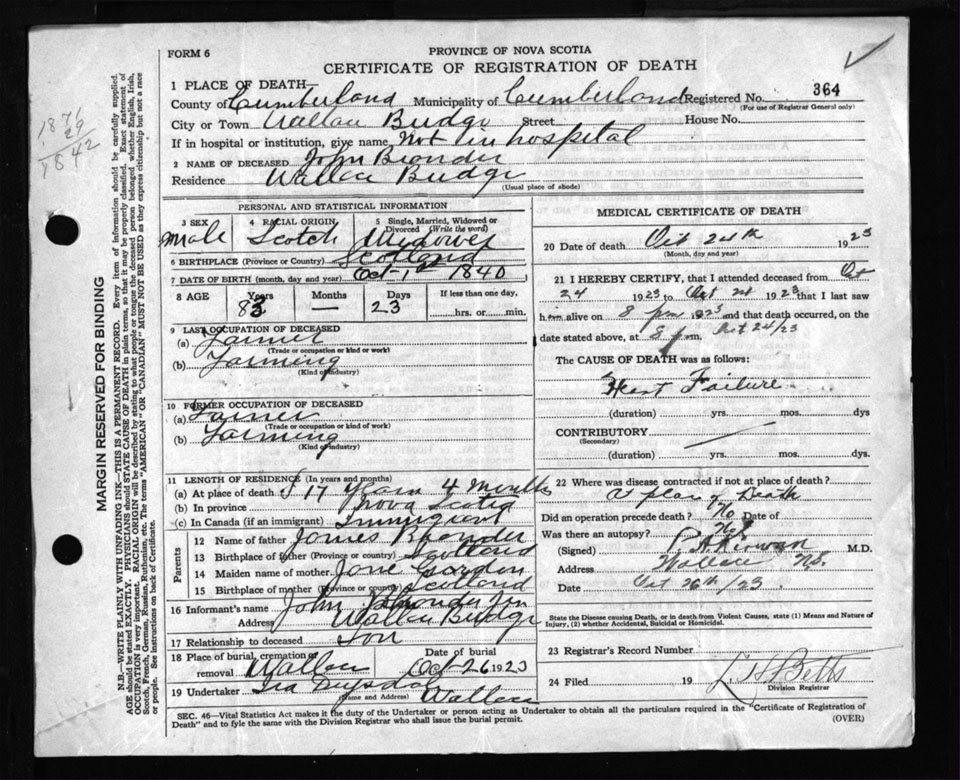 FORM 6
PROVINCE OF NOVA SCOTIA
CERTIFICATE OF REGISTRATION OF DEATH
1 PLACE OF DEATH—
364
County of Cumberland Municipality of Cumberland Registered No.
(For use of Registrar General only)
City or Town Wallace Bridge Street House No.
If in hospital or institution, give name Not in hospital
2 NAME OF DECEASED John Bronder
Residence Wallace Bridge
(Usual place of abode)
1842
MARGIN RESERVED FOR BINDING
N.B.—WRITE PLAINLY WITH UNFADING INK—THIS IS A PERMANENT RECORD. Every item of information should be carefully supplied.
AGE should be stated EXACTLY. PHYSICIANS should STATE CAUSE OF DEATH in plain terms, so that it may be properly classified. Exact statement of
OCCUPATION is very important. RACIAL ORIGIN will be described by stating to what people or tongue the deceased person belonged whether English, Irish,
Scotch, French, German, Russian, Ruthenian, etc. The terms "AMERICAN" OR "CANADIAN" MUST NOT BE USED as they express citizenship but not a race
or people. See instructions on back of Certificate.
PERSONAL AND STATISTICAL INFORMATION
3 SEX
Male
4 RACIAL ORIGIN
Scotch
5 Single, Married, Widowed or
Divorced (Write the word)
Widower
6 BIRTHPLACE (Province or Country) Scotland
7 DATE OF BIRTH (month, day and year) Oct 1st 1840
8 AGE
Years
83
Months
—
Days
23
If less than one day,
hrs. or min.
9 LAST OCCUPATION OF DECEASED
(a) Farmer
(Trade or occupation or kind or work)
(b) Farming
(Kind of industry)
10 FORMER OCCUPATION OF DECEASED
(a) Farmer
(Trade or occupation or kind of work)
(b) Farming
(Kind of industry)
11 LENGTH OF RESIDENCE (In years and months)
(a) At place of death 17 Years 4 Months
(b) In province Nova Scotia
(c) In Canada (if an immigrant) Immigrant
Parents
12 Name of father James Bronder
13 Birthplace of father (Province or country) Scotland
14 Maiden name of mother Jane Gordon
15 Birthplace of mother (Province or country) Scotland
16 Informant's name John Bronder Jnr
Address Wallace Bridge
17 Relationship to deceased Son
18 Place of burial, cremation or
removal Wallace
Date of burial
Oct 26 1923
19 Undertaker
(Name and Address)
Wallace
MEDICAL CERTIFICATE OF DEATH
20 Date of death Oct 24th 1923
(Month, day and year)
21 I HEREBY CERTIFY, that I attended deceased from Oct
24 1923 to Oct 24 1923 that I last saw
him alive on 8 pm 1923 and that death occurred, on
date stated above, at 8 p.m. Oct 24/23
The CAUSE OF DEATH was as follows:
Heart Failure
(duration) yrs. mos. dys
CONTRIBUTORY
(Secondary)
(duration) yrs. mos. dys.
22 Where was disease contracted if not at place of death?
At place of Death
Did an operation precede death? No Date of
Was there an autopsy? No
(Signed) M.D.
Address Wallace N.S.
Date Oct 26th/23
State the Disease causing Death, or in death from Violent Causes, state (1) Means and Nature of
Injury, (2) whether Accidental, Suicidal or Homicidal.
23 Registrar's Record Number
24 Filed 19 Betts
Division Registrar
SEC. 46—Vital Statistics Act makes it the duty of the Undertaker or person acting as Undertaker to obtain all the particulars required in the "Certificate of Registration of
Death" and to fyle the same with the Division Registrar who shall issue the burial permit.
(OVER)